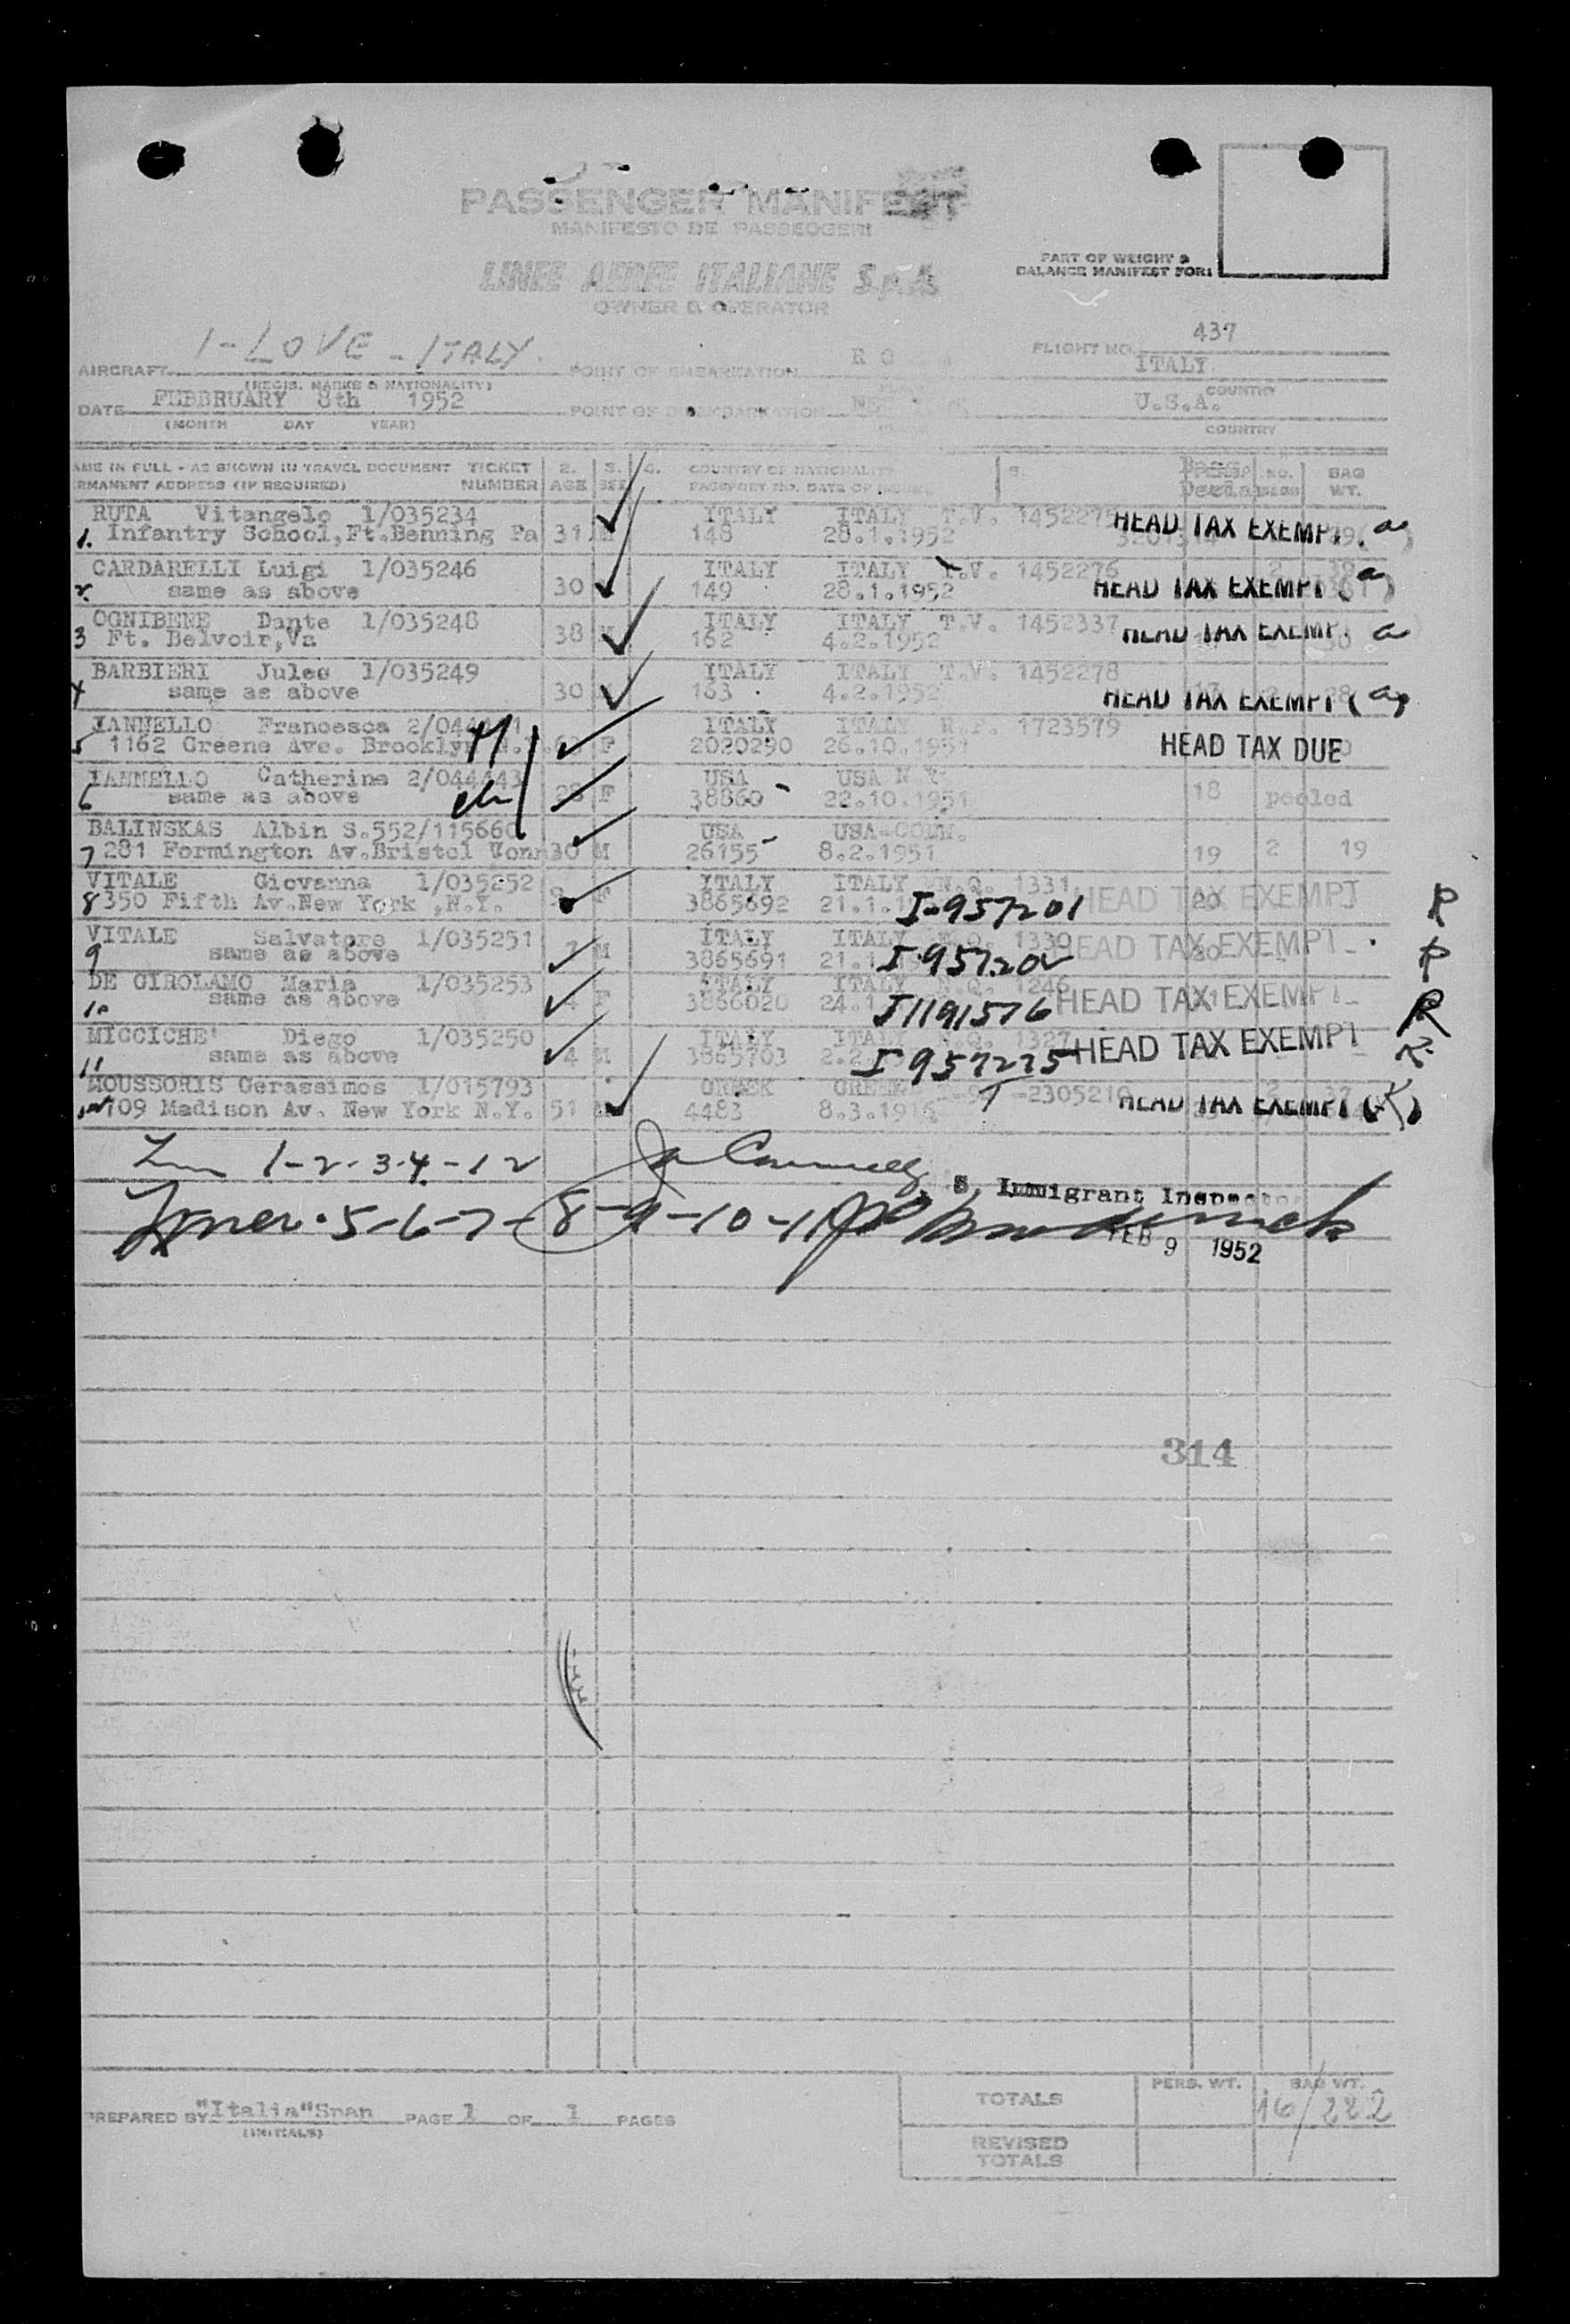 PASSENGER MANIFEST
MANIFESTO DE PASSEOGERI
LINEE AEREE ITALIANE S.p.A.
OWNER & OPERATOR
PART OF WEIGHT &
BALANCE MANIFEST FOR:
AIRCRAFT I-LOVE - ITALY. POINT OF EMBARKATION R O FLIGHT NO. 437
(REGIS. MARKS & NATIONALITY) ITALY
COUNTRY
DATE FEBBRUARY 8th 1952 POINT OF DISEMBARKATION U.S.A.
(MONTH DAY YEAR) COUNTRY
AME IN FULL - AS SHOWN IN TRAVEL DOCUMENT TICKET 2. 3. 4. COUNTRY OF NATIONALITY 5. NO. BAG
RMANENT ADDRESS (IF REQUIRED) NUMBER AGE SEX PASSPORT NO. DATE OF WT.
RUTA Vitangelo 1/035234 ITALY ITALY T.V. 1452275 HEAD TAX EXEMPT
1. Infantry School,Ft.Benning Pa 31 M 148 28.1.1952
CARDARELLI Luigi 1/035246 ITALY ITALY T.V. 1452276 HEAD TAX EXEMPT (a)
2. same as above 30 149 28.1.1952
OGNIBENE Dante 1/035248 ITALY ITALY T.V. 1452337 HEAD TAX EXEMPT a
3 Ft. Belvoir,Va 38 M 162 4.2.1952 30
BARBIERI Jules 1/035249 ITALY ITALY T.V. 1452278
4 same as above 30 163 4.2.1952 HEAD TAX EXEMPT (a)
IANNELLO Francesca ITALY ITALY 1723579
5 1162 Greene Ave. Brooklyn F 2020290 26.10.1951 HEAD TAX DUE
IANNELLO Catherine 2/044443 USA USA N.Y.
6 same as above 28 F 38860 22.10.1951 18 pooled
BALINSKAS Albin S.552/115660 USA USA-CONN.
7 281 Formington Av.Bristol Conn 30 M 26155 8.2.1951 19 2 19
VITALE Giovanna 1/035252 ITALY ITALY N.Q. 1331 HEAD TAX EXEMPT
8 350 Fifth Av.New York ,N.Y. F 3865692 I-957201 20 R
VITALE Salvatore 1/035251 ITALY ITALY N.Q. 1330 HEAD TAX EXEMPT
9 same as above M 3865691 I-957202 R
DE GIROLAMO Maria 1/035253 ITALY ITALY N.Q. 1246 HEAD TAX EXEMPT
10 same as above F 3866020 I1191576 R
MICCICHE' Diego 1/035250 ITALY ITALY N.Q. 1327 HEAD TAX EXEMPT
11 same as above 4 M 3865703 I-957275 R
MOUSSORIS Gerassimos 1/015793 GREEK GREEK
12 709 Madison Av. New York N.Y. 51 M 4483 HEAD TAX EXEMPT
1-2-3-4-12
S, Immigrant Inspector
5-6-7-8-9-10-11
FEB 9 1952
314
TOTALS PERS. WT. BAG WT.
16/222
PREPARED BY "Italia" PAGE 1 OF 1 PAGES
(INITIALS)
REVISED
TOTALS